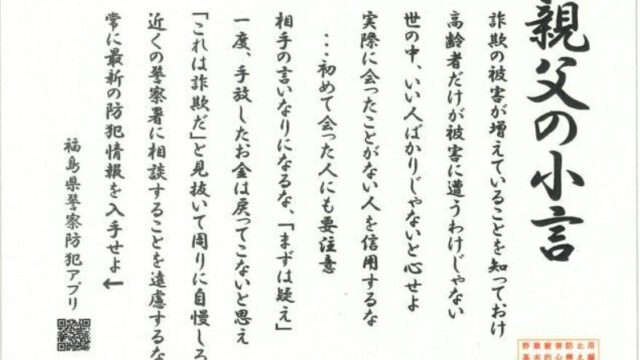 親父の小言
詐欺の被害が増えていることを知っておけ
高齢者だけが被害に遭うわけじゃない
世の中、いい人ばかりじゃないと心せよ
実際に会ったことがない人を信用するな
…初めて会った人にも要注意
相手の言いなりになるな、「まずは疑え」
一度、手放したお金は戻ってこないと思え
「これは詐欺だ」と見抜いて周りに自慢しろ
近くの警察署に相談することを遠慮するな
常に最新の防犯情報を入手せよ←
福島県警察防犯アプリ